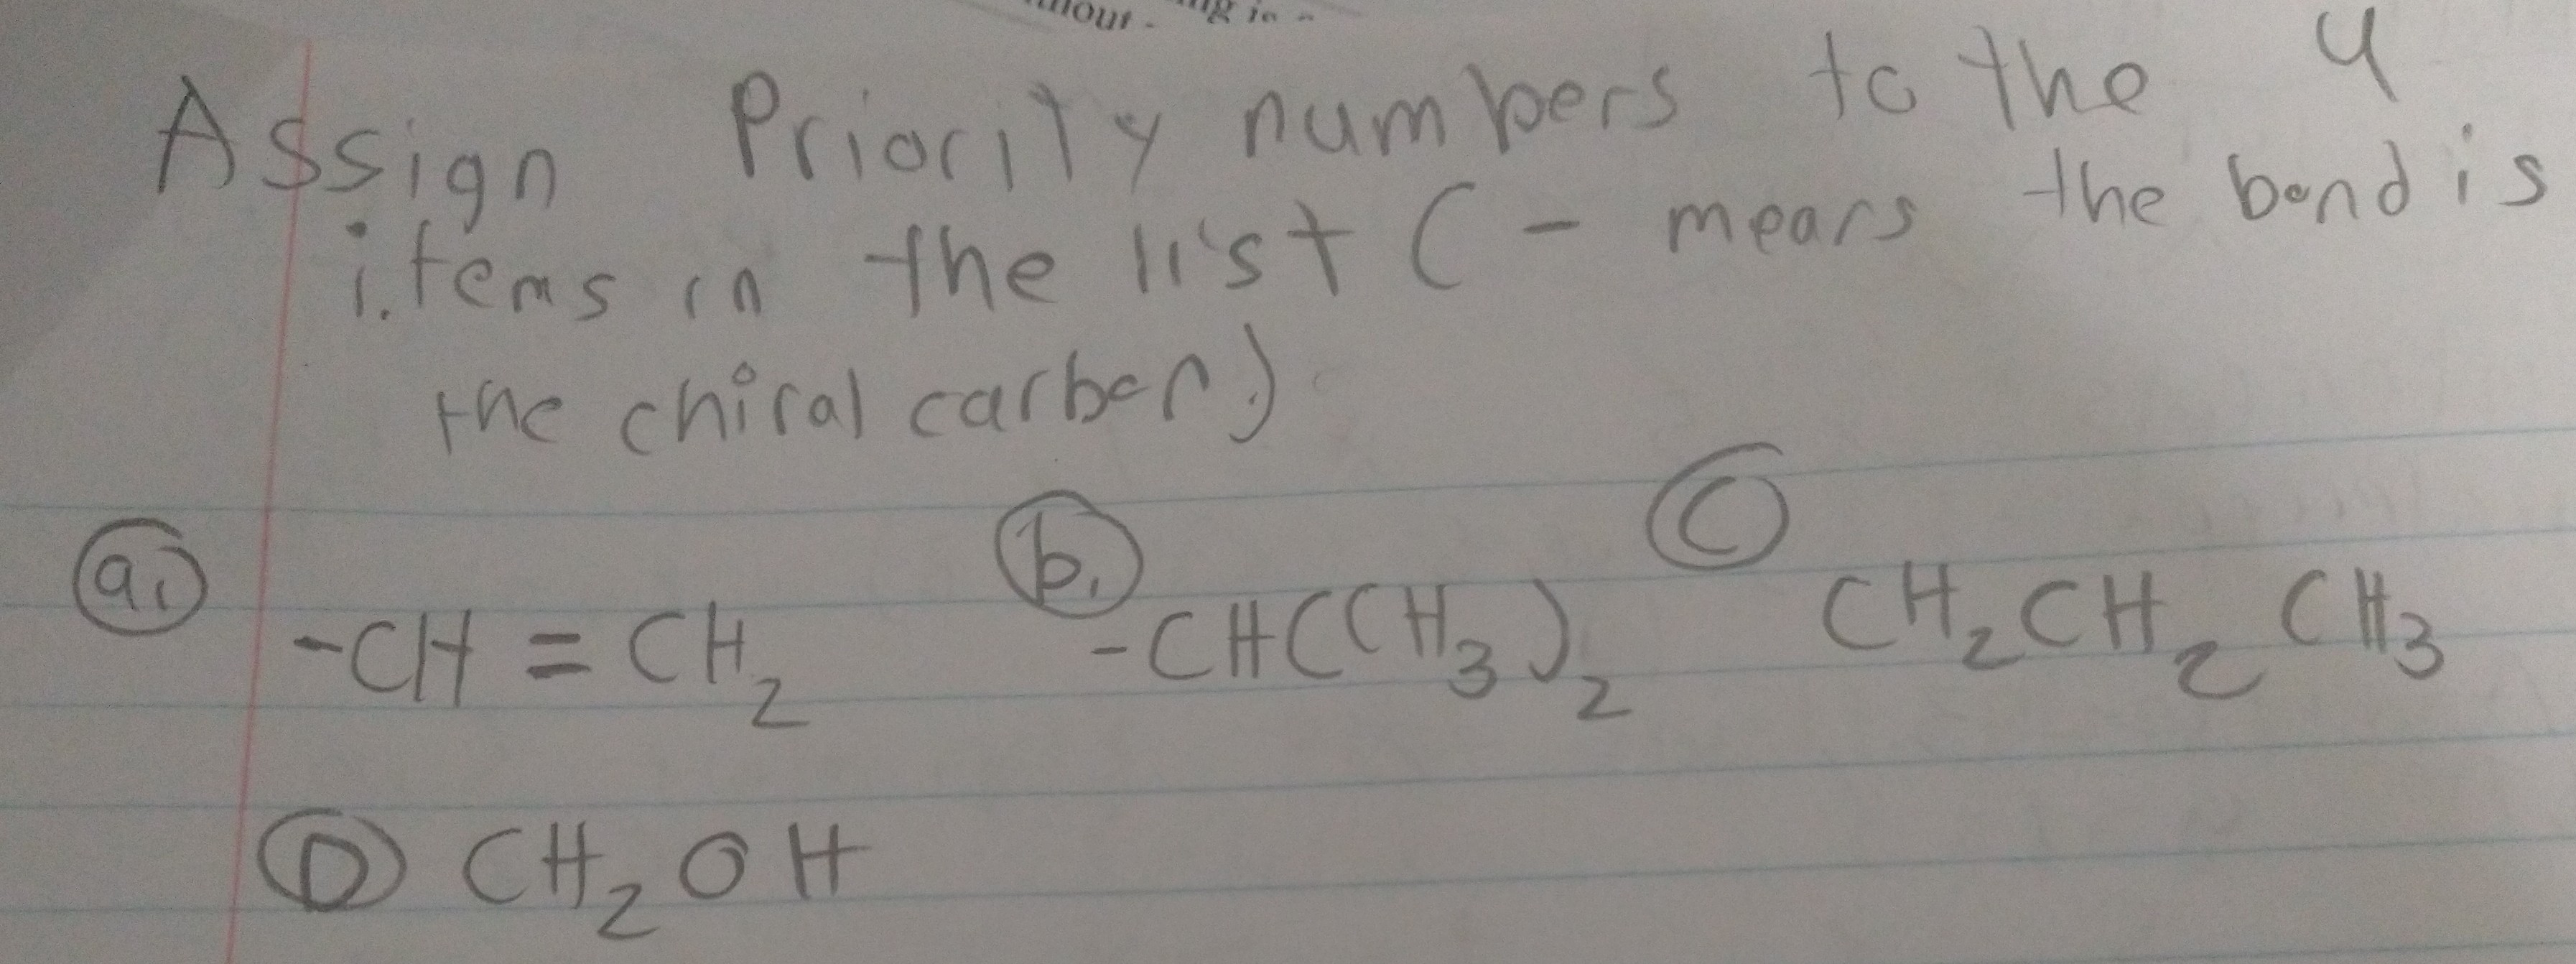 Assign Priority numbers to the 4
items in the list (- means the bond is
the chiral carbon)
a. b. C
-CH=CH₂ -CH(CH₃)₂ CH₂CH₂CH₃
D CH₂OH